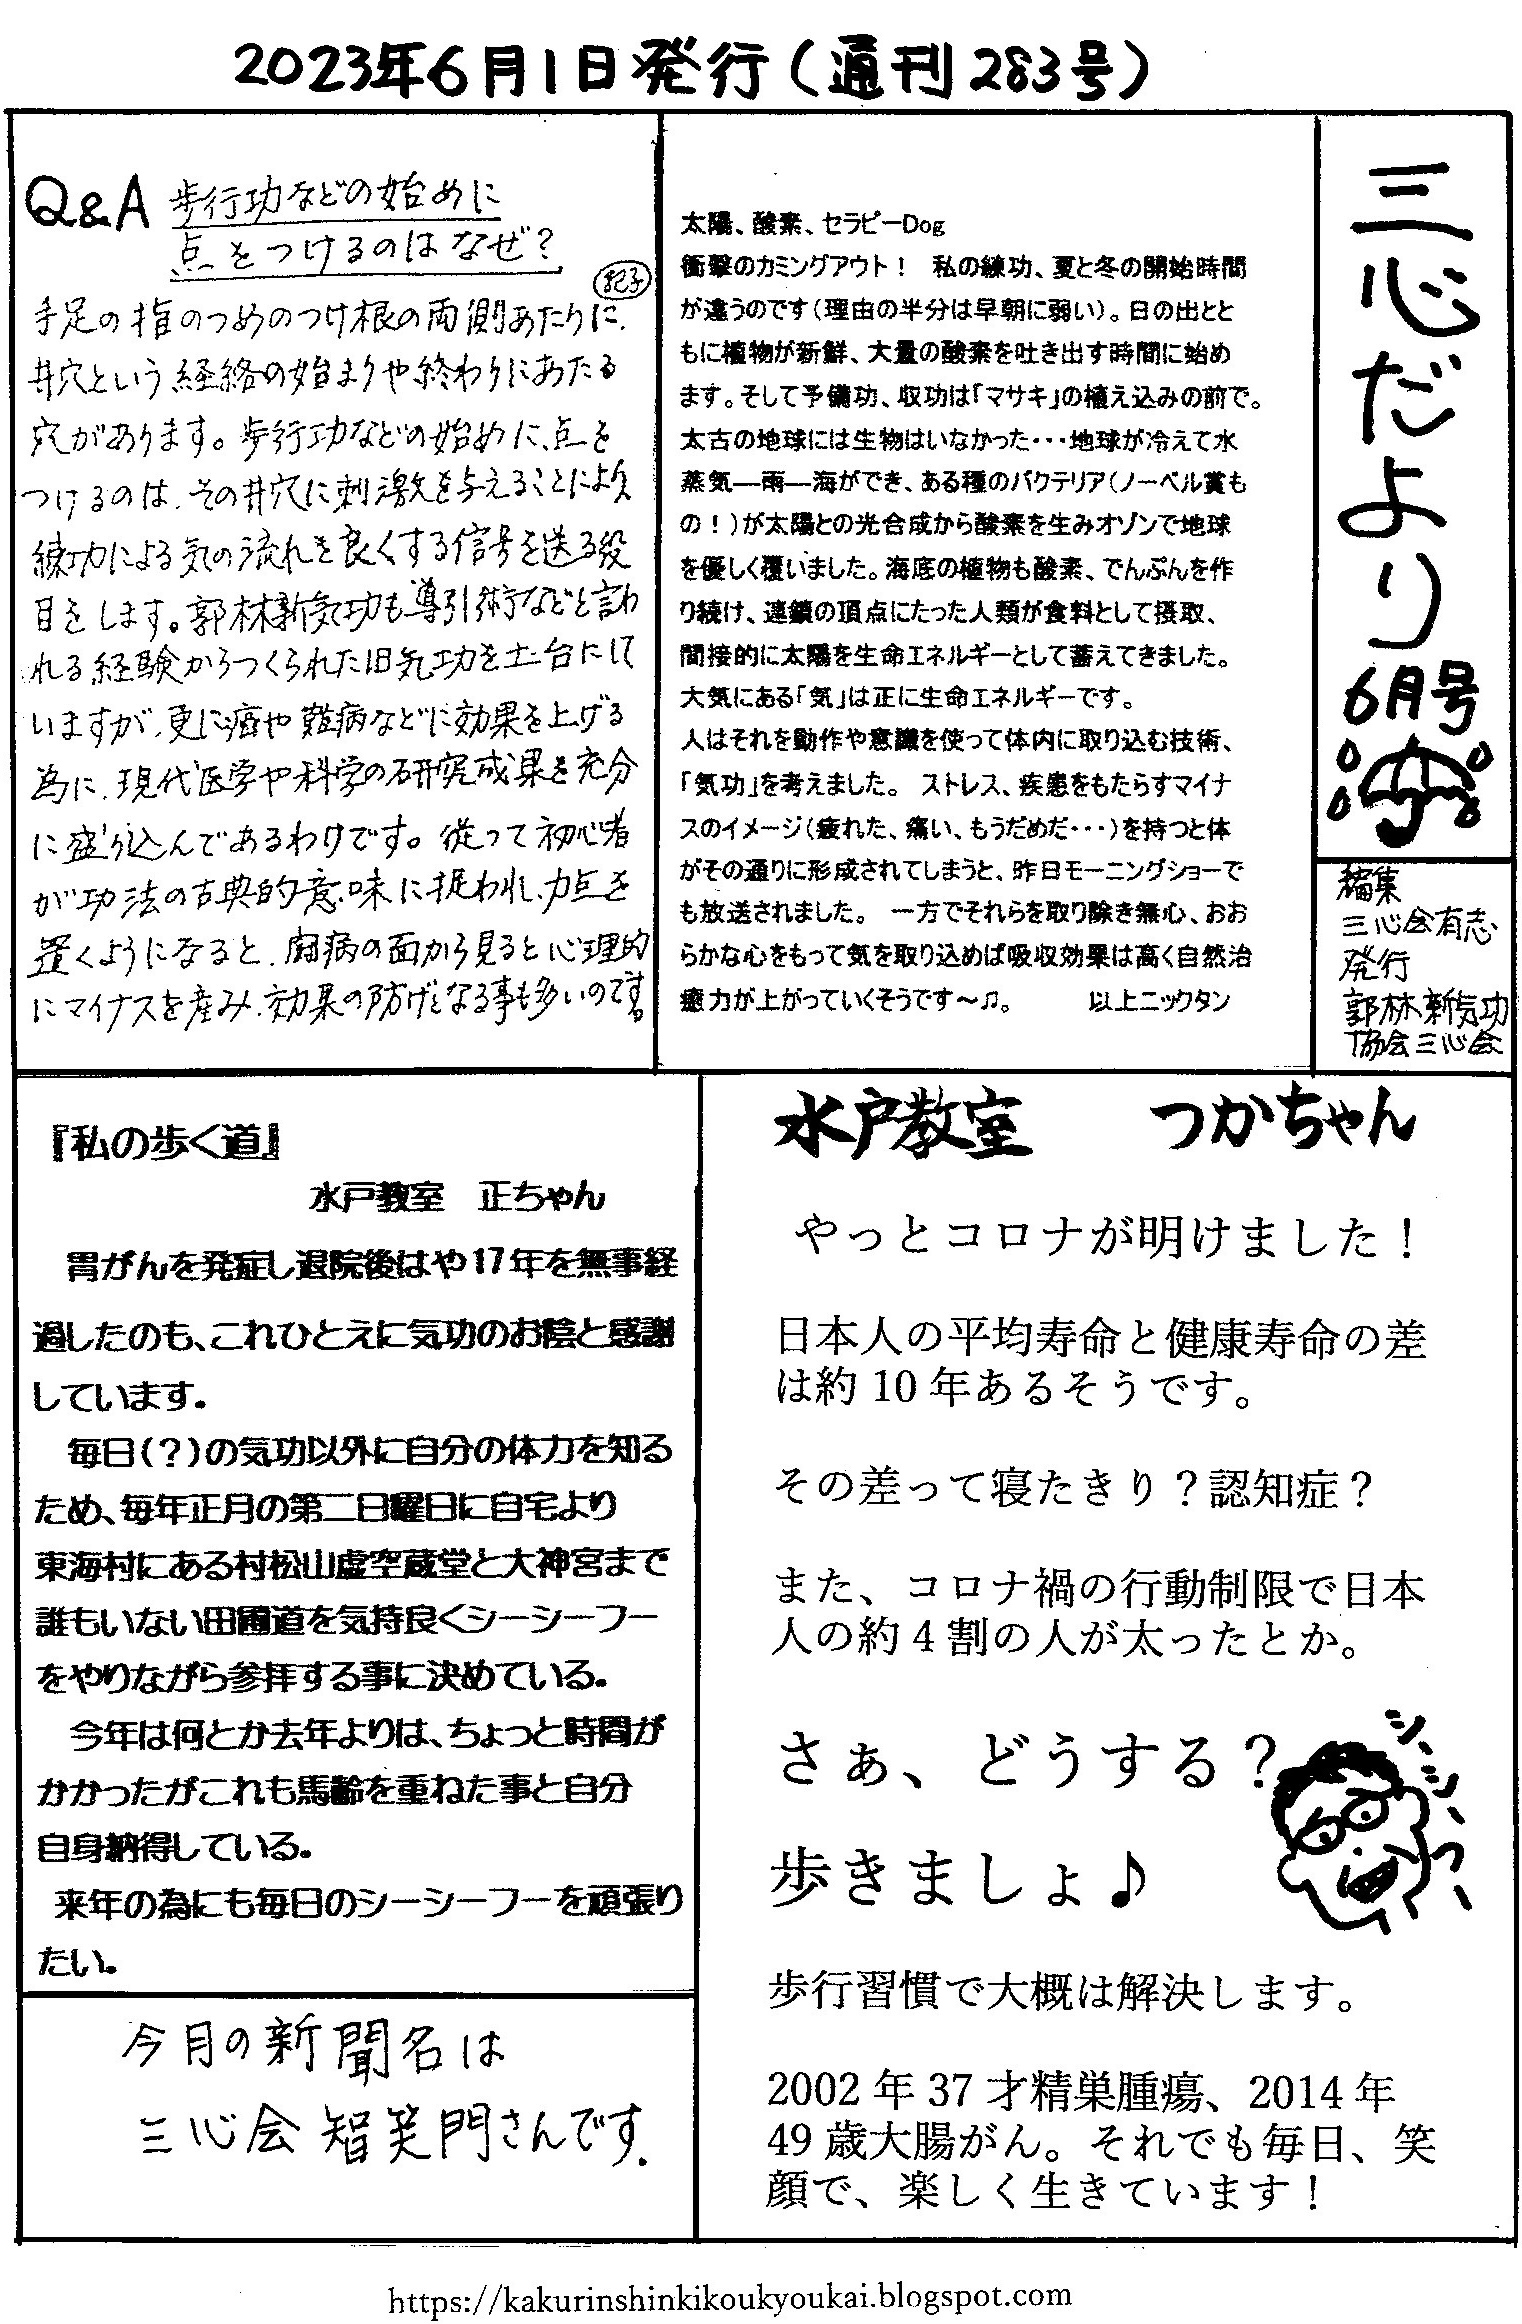 2023年6月1日発行(通刊283号)
三心だより
6月号
編集
三心会有志
発行
郭林新気功
協会三心会
太陽、酸素、セラピーDog
衝撃のカミングアウト！　私の練功、夏と冬の開始時間
が違うのです(理由の半分は早朝に弱い)。日の出とと
もに植物が新鮮、大量の酸素を吐き出す時間に始め
ます。そして予備功、収功は「マサキ」の植え込みの前で。
太古の地球には生物はいなかった・・・地球が冷えて水
蒸気―雨―海ができ、ある種のバクテリア(ノーベル賞も
の！)が太陽との光合成から酸素を生みオゾンで地球
を優しく覆いました。海底の植物も酸素、でんぷんを作
り続け、連鎖の頂点にたった人類が食料として摂取、
間接的に太陽を生命エネルギーとして蓄えてきました。
大気にある「気」は正に生命エネルギーです。
人はそれを動作や意識を使って体内に取り込む技術、
「気功」を考えました。　ストレス、疾患をもたらすマイナ
スのイメージ(疲れた、痛い、もうだめだ・・・)を持つと体
がその通りに形成されてしまうと、昨日モーニングショーで
も放送されました。　一方でそれらを取り除き無心、おお
らかな心をもって気を取り込めば吸収効果は高く自然治
癒力が上がっていくそうです～♫。　　　以上ニックタン
Q&A 歩行功などの始めに
点をつけるのはなぜ？
紀子
手足の指のつめのつけ根の両側あたりに、
井穴という経絡の始まりや終わりにあたる
穴があります。歩行功などの始めに、点を
つけるのは、その井穴に刺激を与えることにより
練功による気の流れを良くする信号を送る役
目をします。郭林新気功も導引術などと言わ
れる経験からつくられた旧気功を土台にして
いますが、更に癌や難病などに効果を上げる
為に、現代医学や科学の研究成果を充分
に盛り込んであるわけです。従って初心者
が功法の古典的意味に捉われ、力点を
置くようになると、闘病の面から見ると心理的
にマイナスを産み、効果の妨げとなる事も多いのです。
『私の歩く道』
水戸教室　正ちゃん
胃がんを発症し退院後はや17年を無事経
過したのも、これひとえに気功のお陰と感謝
しています。
毎日(？)の気功以外に自分の体力を知る
ため、毎年正月の第二日曜日に自宅より
東海村にある村松山虚空蔵堂と大神宮まで
誰もいない田圃道を気持良くシーシーフー
をやりながら参拝する事に決めている。
今年は何とか去年よりは、ちょっと時間が
かかったがこれも馬齢を重ねた事と自分
自身納得している。
来年の為にも毎日のシーシーフーを頑張り
たい。
今月の新聞名は
三心会 智笑門さんです.
水戸教室　つかちゃん
やっとコロナが明けました！
日本人の平均寿命と健康寿命の差
は約 10 年あるそうです。
その差って寝たきり？認知症？
また、コロナ禍の行動制限で日本
人の約 4 割の人が太ったとか。
さぁ、どうする？
歩きましょ♪
シ、シ、フ、
歩行習慣で大概は解決します。
2002 年 37 才精巣腫瘍、2014 年
49 歳大腸がん。それでも毎日、笑
顔で、楽しく生きています！
https://kakurinshinkikoukyoukai.blogspot.com